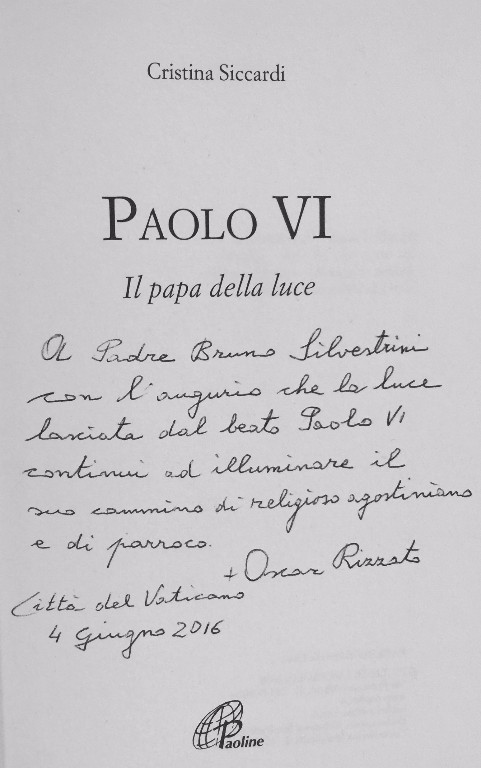 Cristina Siccardi
PAOLO VI
Il papa della luce
A Padre Bruno Silvestrini
con l'augurio che la luce
lasciata dal beato Paolo VI
continui ad illuminare il
suo cammino di religioso agostiniano
e di parroco.
+ Oscar Rizzato
Città del Vaticano
4 Giugno 2016
Paoline